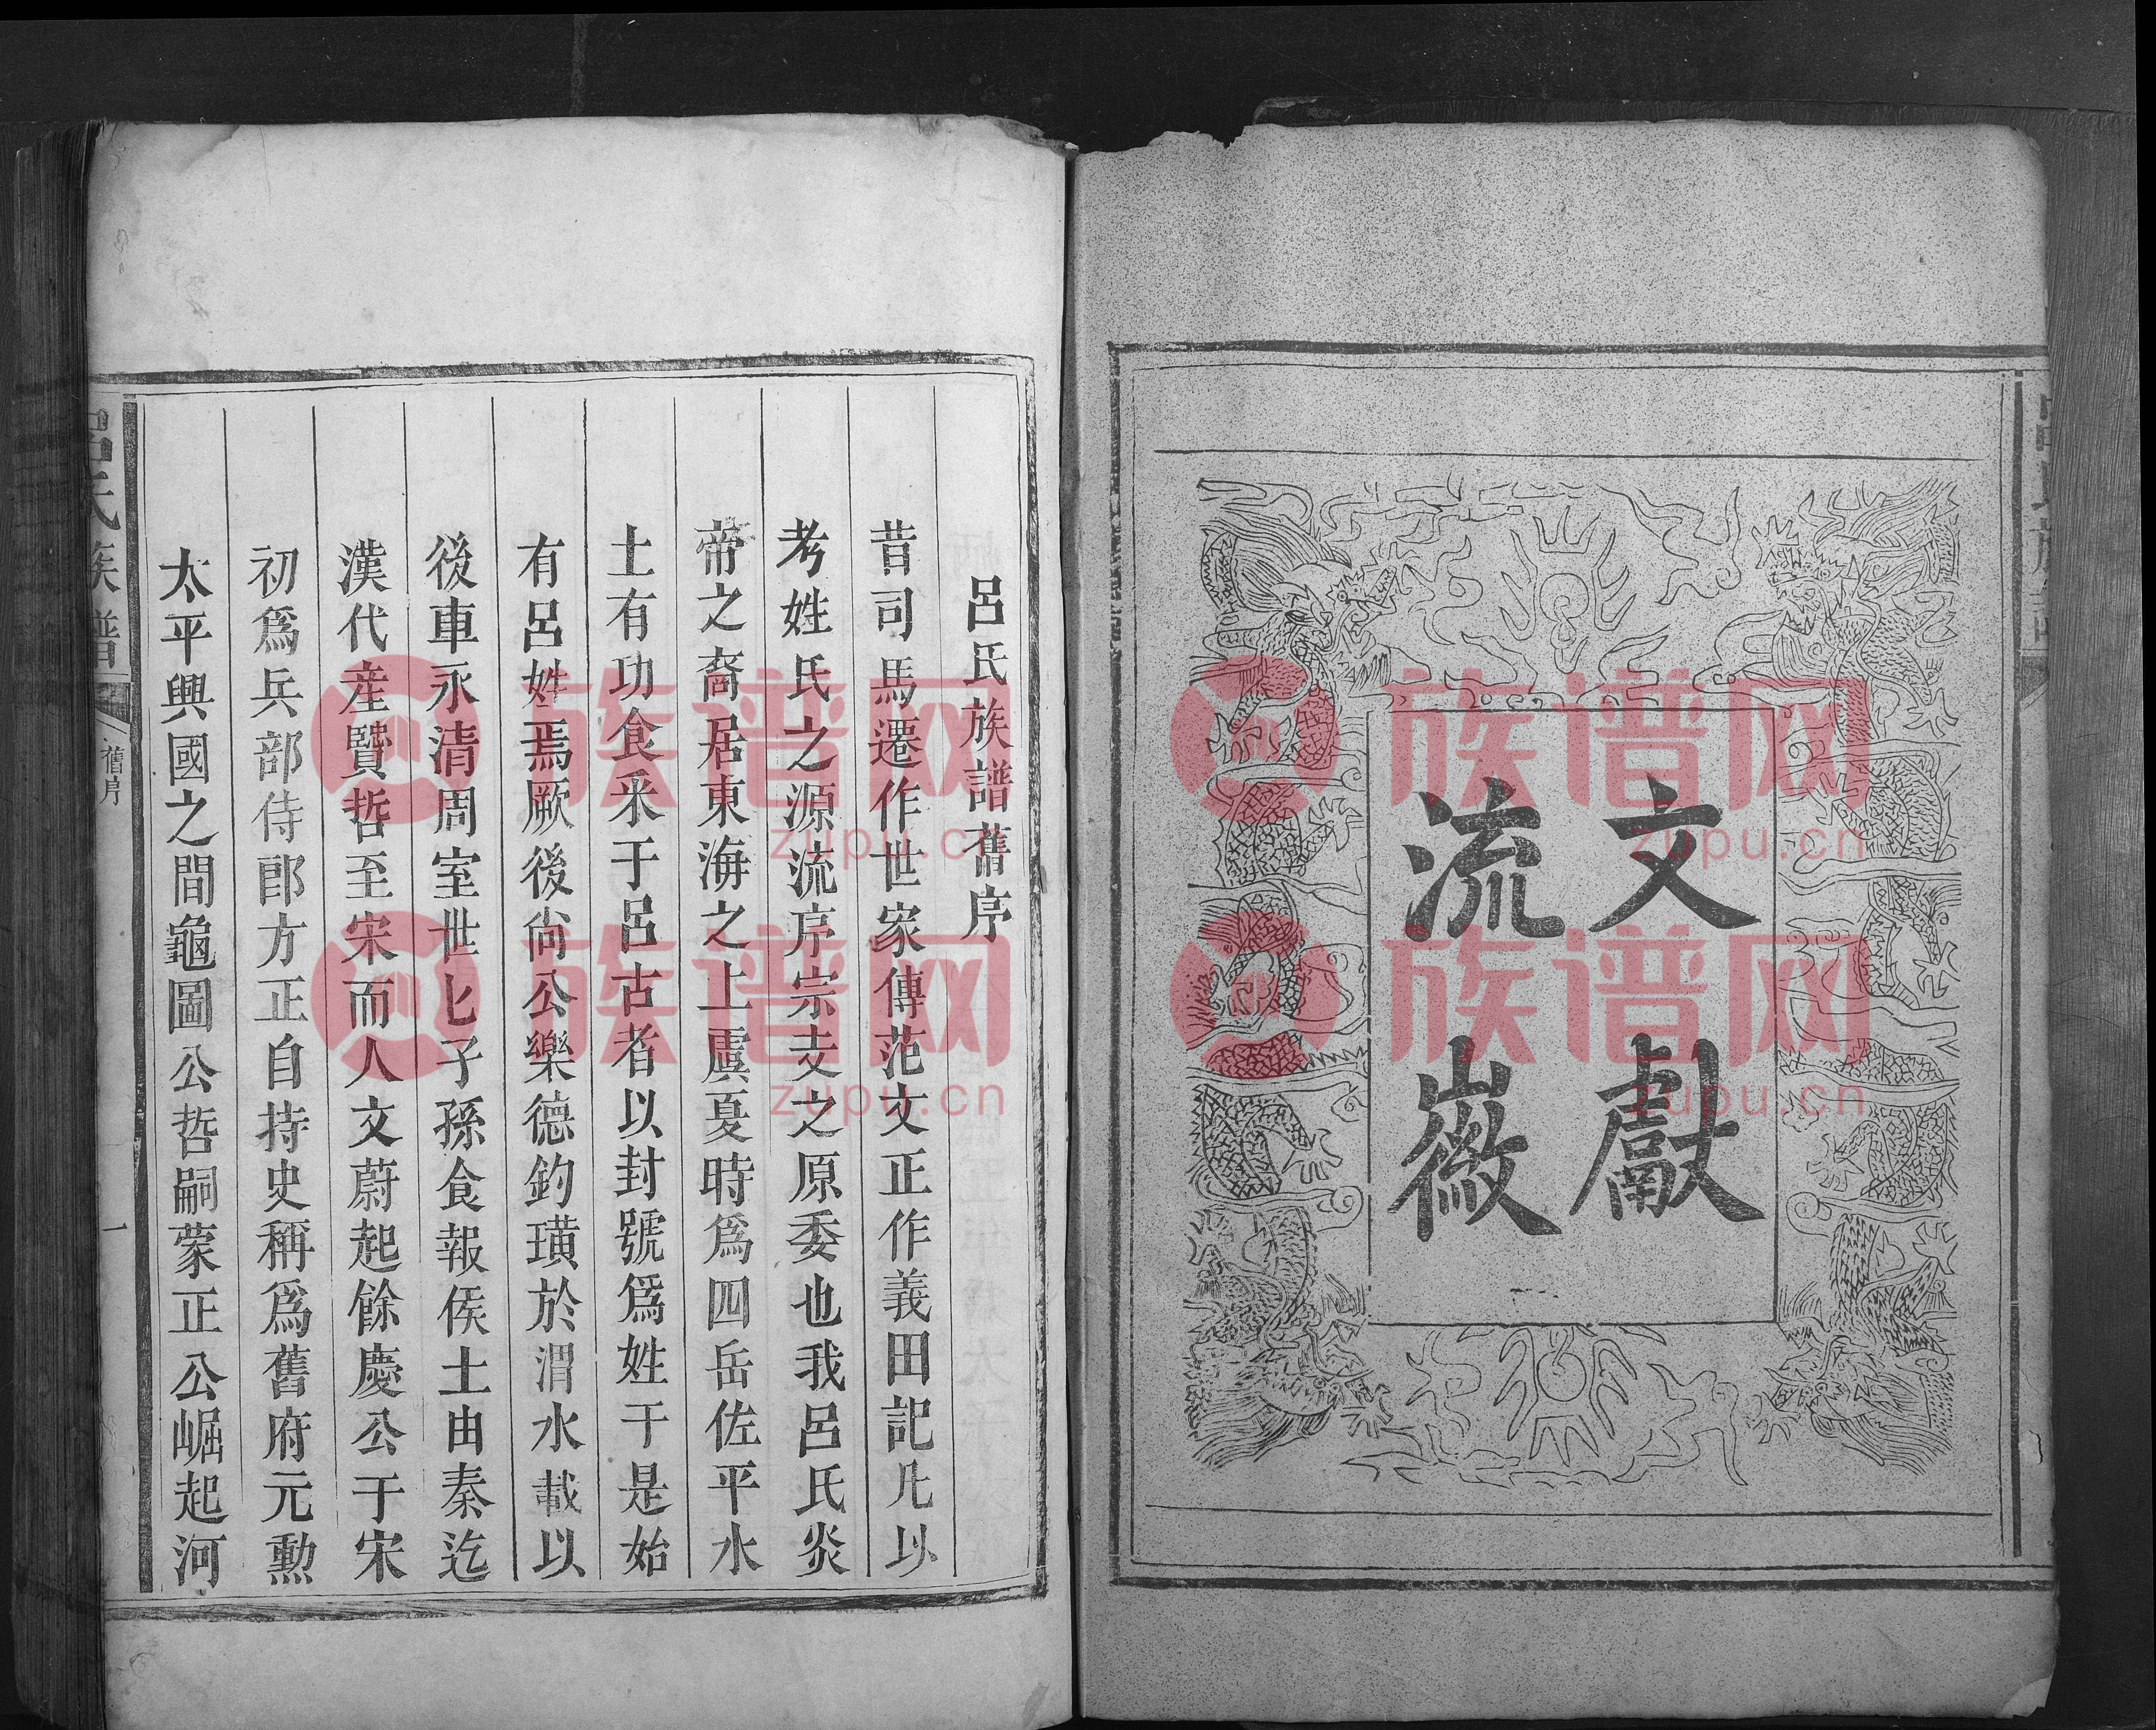 文獻
流徽
呂氏族譜
呂氏族譜舊序
昔司馬遷作世家傳范文正作義田記凡以
考姓氏之源流序宗支之原委也我呂氏炎
帝之裔居東海之上虞夏時為四岳佐平水
土有功食采于呂古者以封號為姓于是始
有呂姓焉厥後尙公樂德釣璜於渭水載以
後車永清周室世匕子孫食報侯土由秦迄
漢代産賢哲至宋而人文蔚起餘慶公于宋
初爲兵部侍郎方正自持史稱爲舊府元勳
太平興國之間龜圖公哲嗣蒙正公崛起河
呂氏族譜
舊序
一
族谱网
zupu.cn
族谱网
zupu.cn
族谱网
zupu.cn
族谱网
zupu.cn